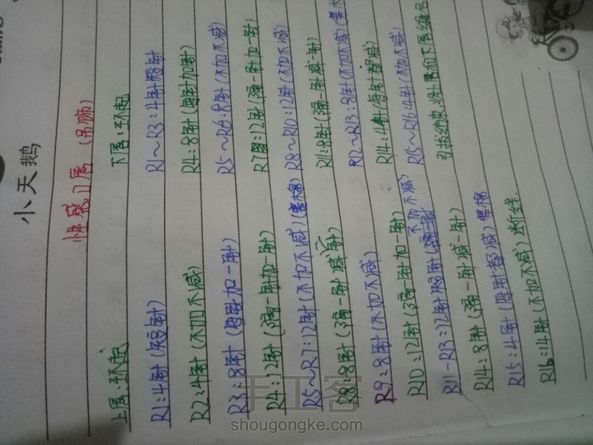 小天鹅
性感口唇（吊饰）
上唇:环起
R1:4针(短针)
R2:4针(不加不减)
R3:8针(每针加一针)
R4:12针(隔一针加一针)
R5~R7:12针(不加不减)(塞棉)
R8:8针(隔一针减针)
R9:8针(不加不减)
R10:12针(隔一针加一针)
R11-R13:12针(不加不减)
R14:8针(隔一针减一针)
R15:4针(每针都减)塞棉
R16:4针(不加不减)断线.
下唇:环起
R1~R3:4针短针
R4:8针(每针加针)
R5~R6:8针(不加不减)
R7:12针(隔一针加一针)
R8~R10:12针(不加不减)
R11:8针(隔一针减一针)
R12~R13:8针(不加不减)(塞棉
R14:4针(每针都减)
R15~R16:4针(不加不减)
引拔结束,将上唇和下唇缝合
手工客
shougongke.com